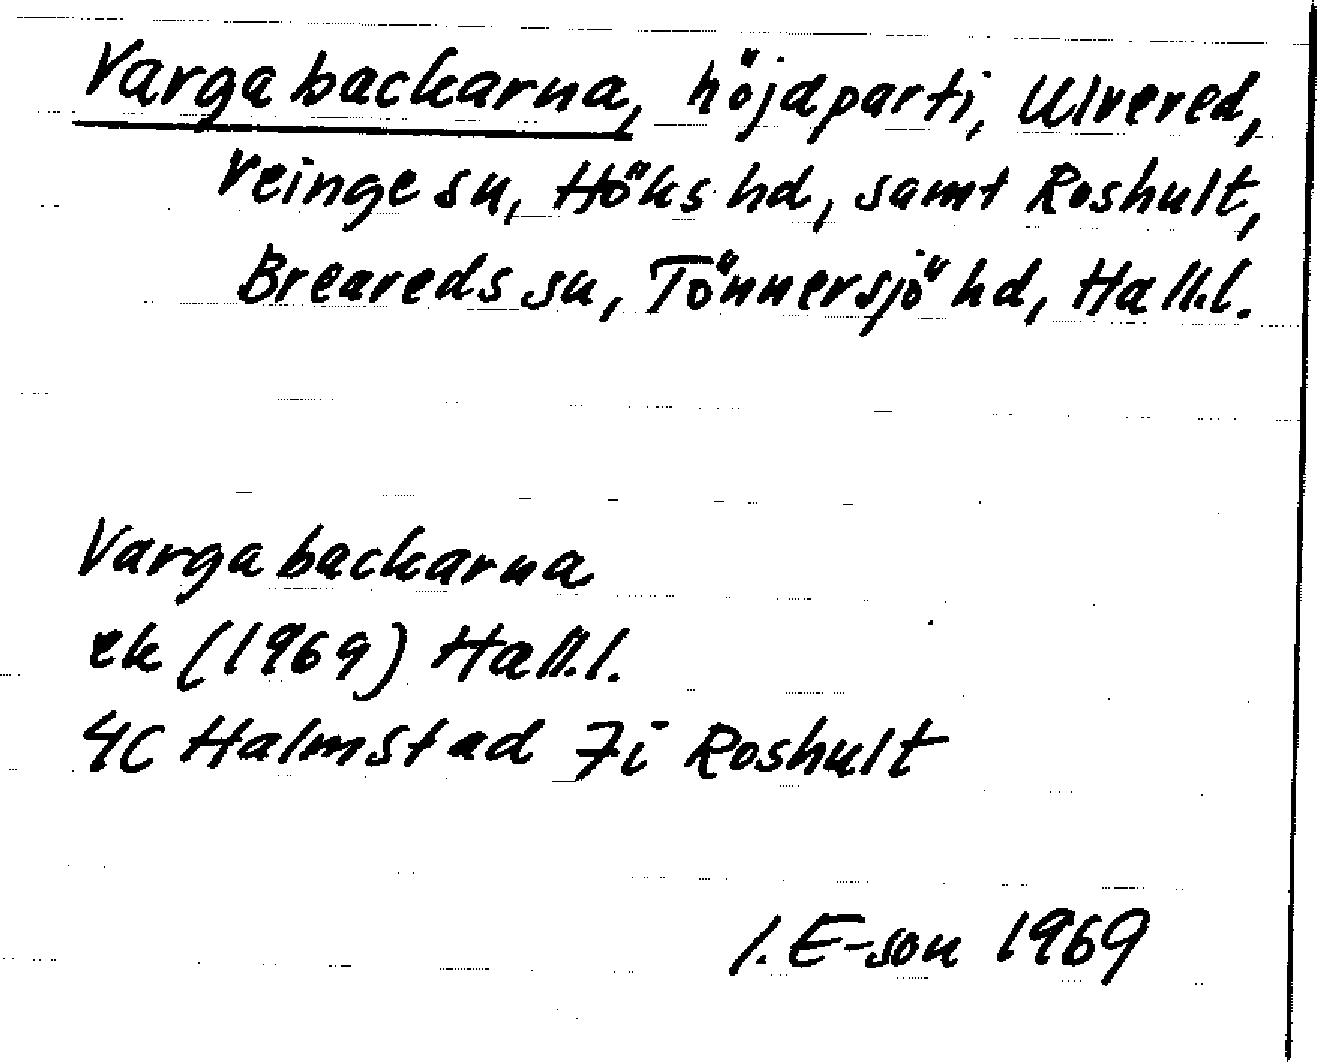 Vargabackarna, höjdparti, Ulvered,
Veinge sn, Höks hd, samt Roshult,
Breareds sn, Tönnersjö hd, Hall.l.
Vargabackarna
ek (1969) Hall.l.
4C Halmstad 7i Roshult
I. E-son 1969